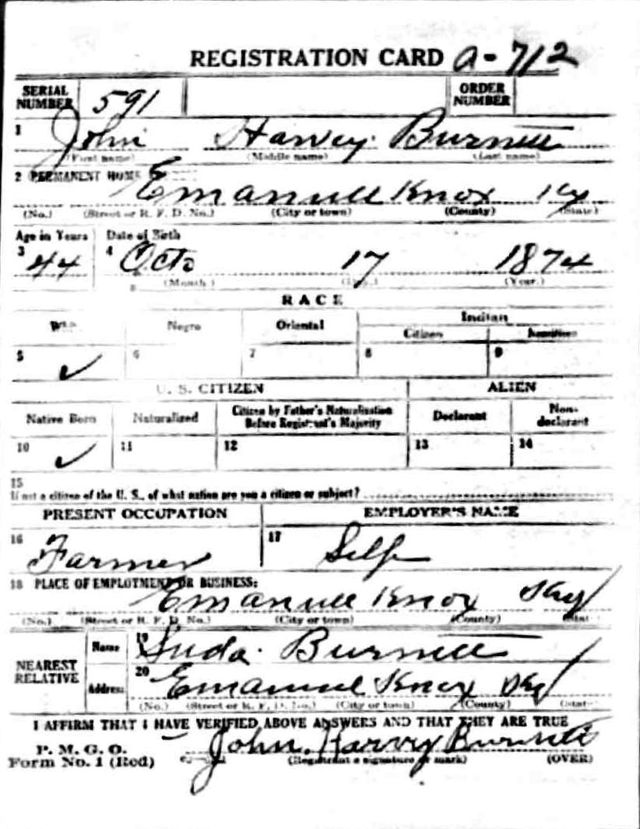 REGISTRATION CARD a-712
SERIAL NUMBER 591 ORDER NUMBER
1 John Harvey Burnett
(First name) (Middle name) (Last name)
2 PERMANENT HOME Emanuell Knox Ky
(No.) (Street or R. F. D. No.) (City or town) (County) (State)
Age in Years Date of Birth
3 44 4 Octo 17 1874
(Month) (Day) (Year)
RACE
White Negro Oriental Indian
Citizen Noncitizen
5 ✓ 6 7 8 9
U. S. CITIZEN ALIEN
Native Born Naturalized Citizen by Father's Naturalization Before Registrant's Majority Declarant Non-declarant
10 ✓ 11 12 13 14
15
If not a citizen of the U. S., of what nation are you a citizen or subject?
PRESENT OCCUPATION EMPLOYER'S NAME
16 Farmer 17 Self
18 PLACE OF EMPLOYMENT OR BUSINESS:
Emanuell Knox Ky
(No.) (Street or R. F. D. No.) (City or town) (County) (State)
NEAREST RELATIVE Name 19 Suda Burnett
Address 20 Emanuel Knox Ky
(No.) (Street or R. F. D. No.) (City or town) (County) (State)
I AFFIRM THAT I HAVE VERIFIED ABOVE ANSWERS AND THAT THEY ARE TRUE
P. M. G. O.
Form No. 1 (Red) John Harvey Burnett
(Registrant's signature or mark) (OVER)